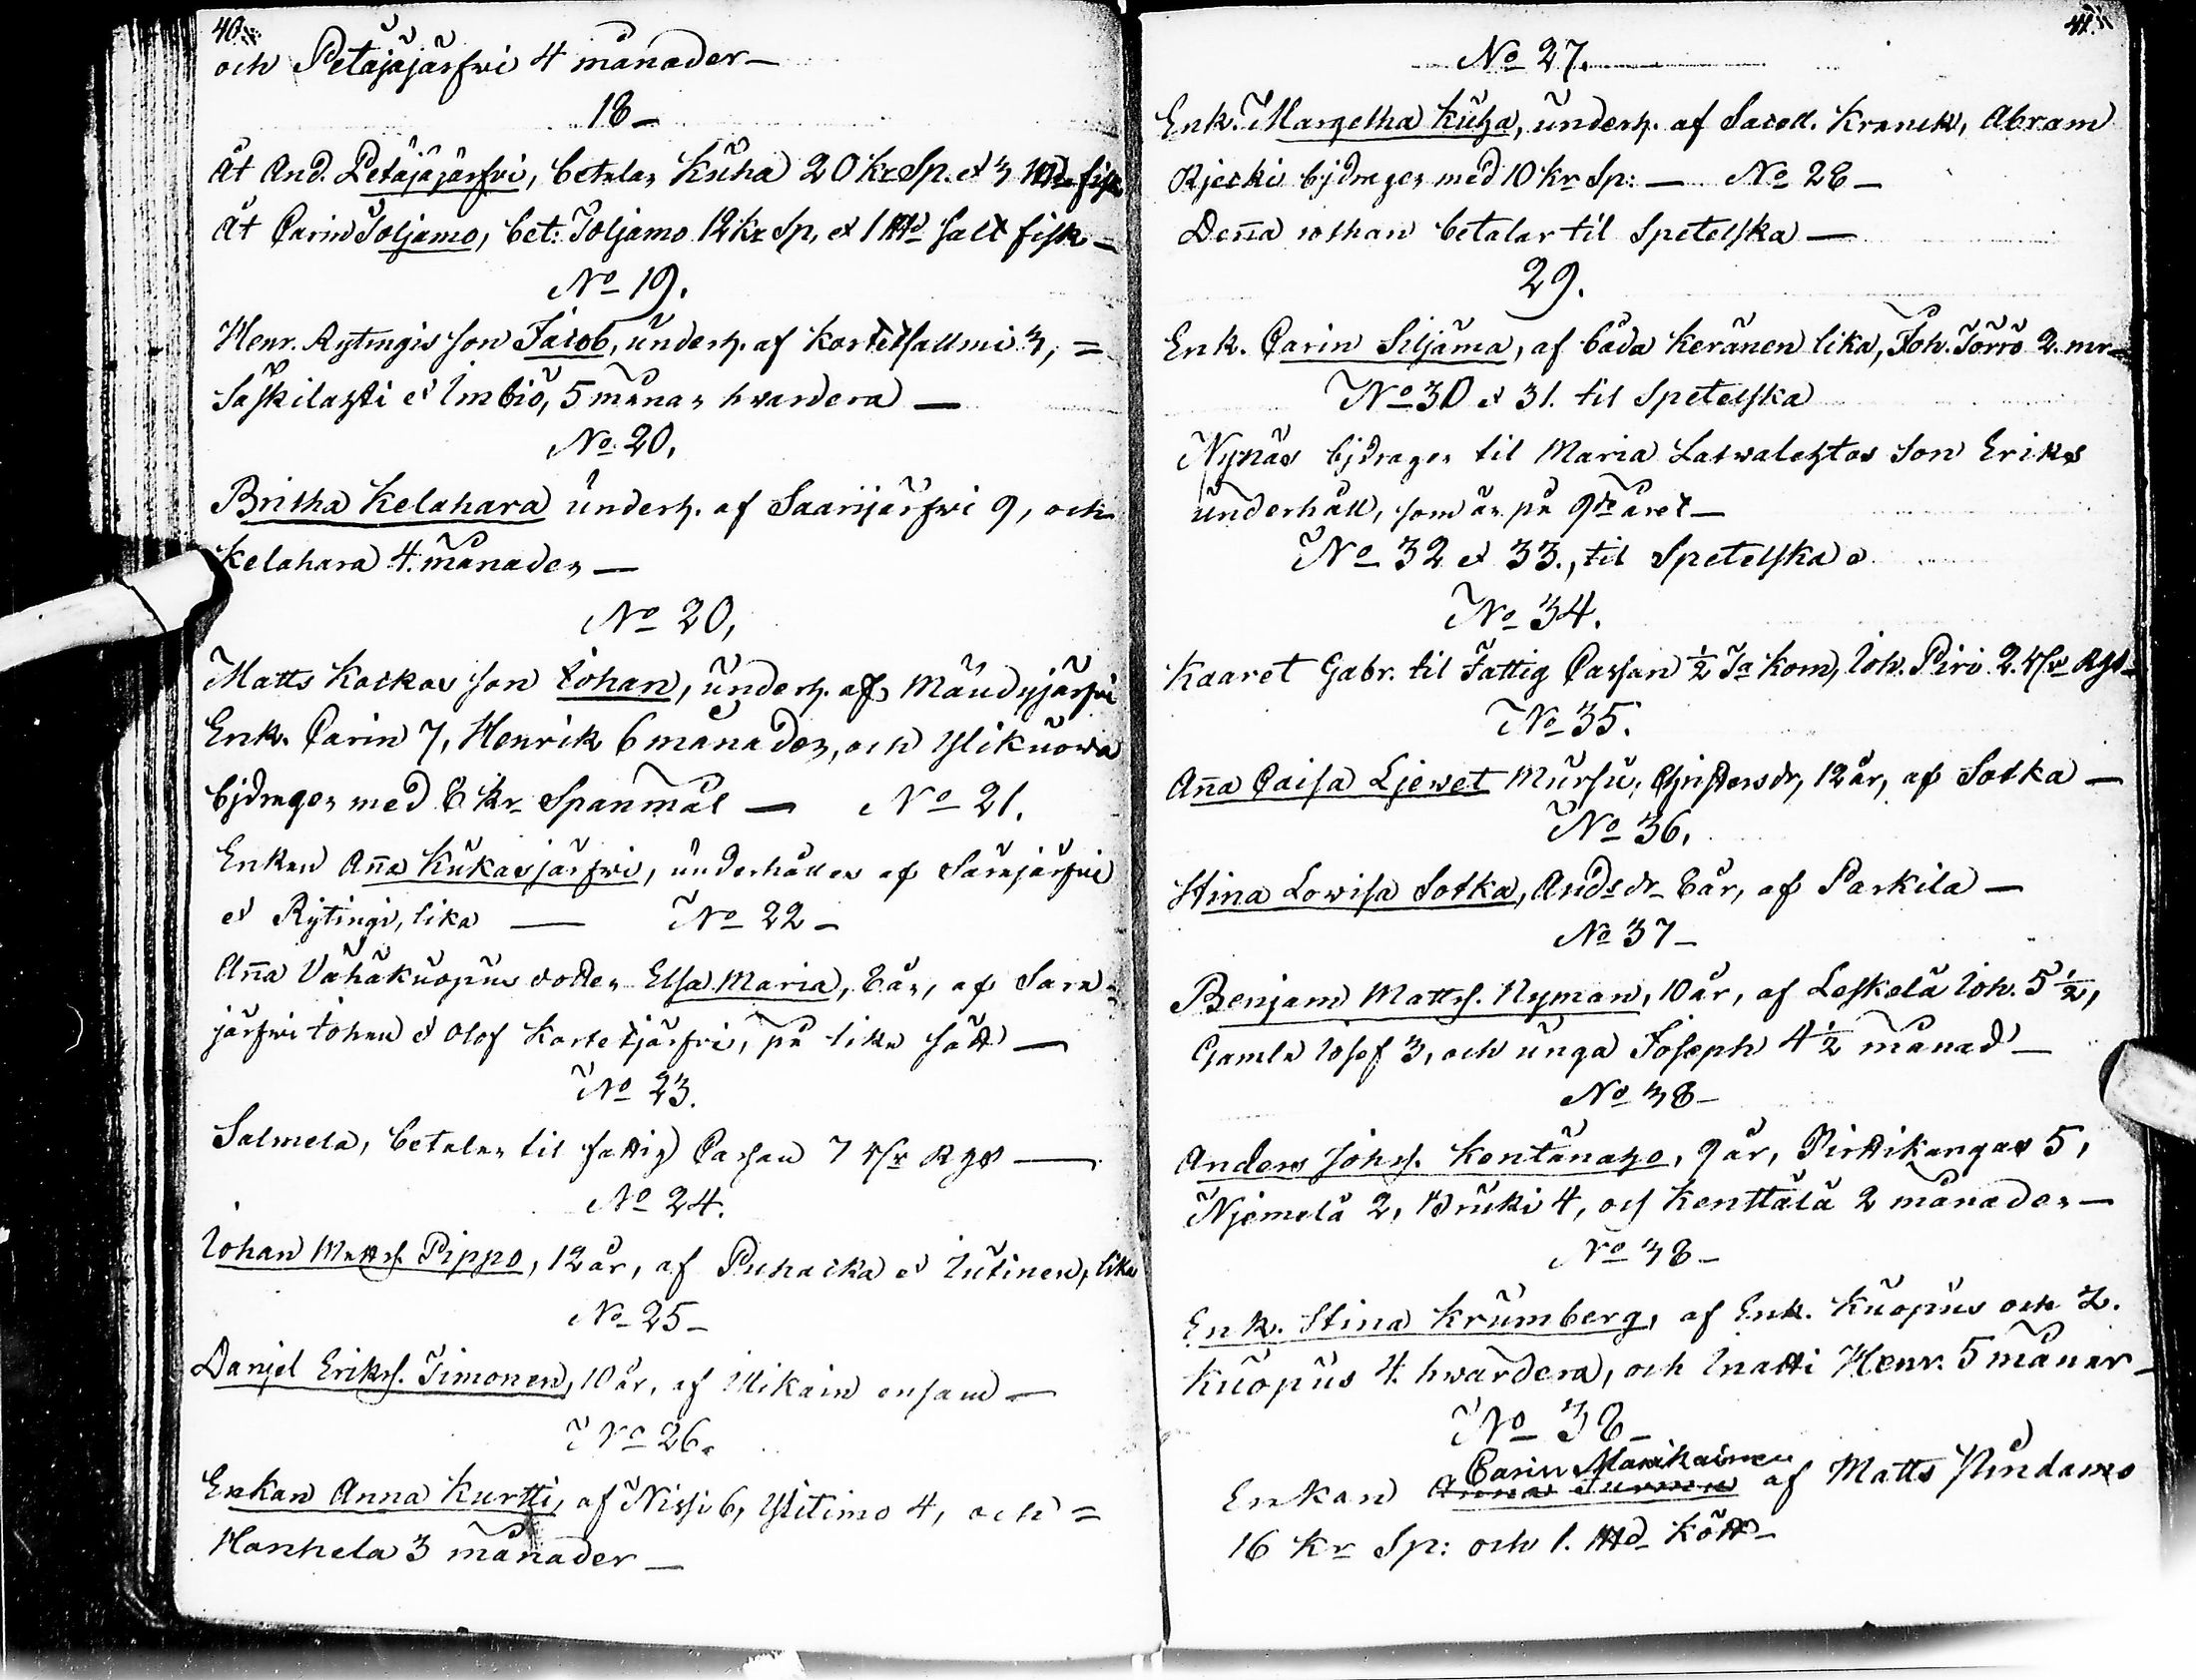 40.
och Petäjäjärfwi 4 månader —
18 —
Åt And. Petäjäjärfwi, betalar Kuha 20 kr Sp. et 3 fisk
Åt Carin Toljamo, bet: Toljamo 12 kr Sp. et 1 salt fisk —
No 19.
Henr. Rytingis son Jacob, underh. af Kortetsallmi 3, =
Säskilahti et Imbiö, 5 månar hwardera —
No 20,
Britha Kelahara underh. af Saarijärfwi 9, och
Kelahara 4. månader —
No 20,
Matts Kackos son Johan, underh. af
Enk. Carin 7, Henrik 6 månader, och Ylikuowa
bidrager med 8 kr Spanmål — No 21.
Enkan Anna Kukasjärfwi, underhålles af Särejärfwi
et Rytingi, lika — No 22 —
Anna Vähäkuopus dotter Elsa Maria, 8 år, af Sare =
järfwi Johan et Olof Kortetjärfwi, på lika sätt —
No 23.
Salmela, betalar til fattig Cassan 7 Rgs —
No 24.
Johan Matts. Pippo, 12 år, af Puhacka et Jutinen, lika
No 25 —
Danjel Eriks. Timonen, 10 år, af Mikain ensam —
No 26.
Enkan Anna Kurtti, af Nissi 6, Ylitimo 4, och =
Hanhela 3 månader —
41.
No 27.
Enk. Margetha Kuha, underh. af Sacell. Kranck, Abram
Rjecki bjdrager med 10 kr Sp: — No 28 —
Denna rothan betalar til Spetelska —
29.
Enk. Carin Siljama, af båda Keränen lika, Joh. Törrö 2. mr —
No 30 et 31. til Spetelska
Nynäs bjdrager til Maria Latwalehtos son Eriks
underhåll, som är på 9de året —
No 32 et 33., til Spetelska
No 34.
Kaaret Gabr. til Fattig Cassan ½ Ta korn, Joh. Piri 2. Rgs —
No 35.
Anna Caisa Ljewet Mursu, Christersdr, 12 år, af Sotka —
No 36.
Stina Lowisa Sotka, Andsdr 8 år, af Parkila —
No 37 —
Benjam Matts. Nyman, 10 år, af Leskelä Joh. 5 ½,
Gamla Josef 3, och unga Joseph 4 ½ månad —
No 38 —
Anders Johs. Kentänaho, 9 år, Pirttikangas 5,
Njemelä 2, Krucki 4, och Kenttälä 2 månader —
No 38 —
Enk. Stina Krumberg, af Enk. Kuopus och Z.
Kuopus 4 hwardera, och Inatti Henr. 5 månar —
No 38 —
Carin Manikainen
Enkan af Matts Pindamo
16 kr Sp: och 1. kött —